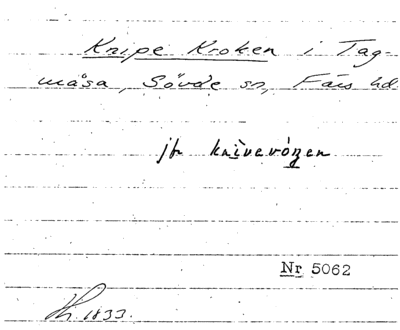 Knipe Kroken i Tag-
måsa, Sövde sn, Färs hd
jfr knivevóӡen
Nr 5062
1833.